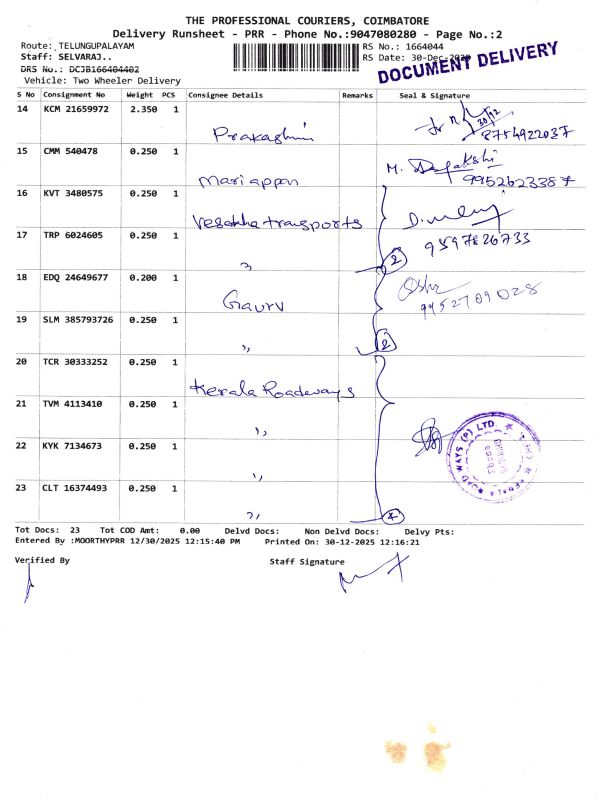 THE PROFESSIONAL COURIERS, COIMBATORE
Delivery Runsheet - PRR - Phone No.:9047080280 - Page No.:2
Route: TELUNGUPALAYAM
RS No.: 1664044
Staff: SELVARAJ..
RS Date: 30-Dec-2025
DRS No.: DCJB166404402
DOCUMENT DELIVERY
Vehicle: Two Wheeler Delivery
S No Consignment No Weight PCS Consignee Details Remarks Seal & Signature
14 KCM 21659972 2.350 1
Prakashini 30/12 8754922037
15 CMM 540478 0.250 1
Mariappan M. 9952623387
16 KVT 3480575 0.250 1
Vesakha transports
17 TRP 6024605 0.250 1
,, 2 9597826733
18 EDQ 24649677 0.200 1
Gaurv 9952709028
19 SLM 385793726 0.250 1
,, 2
20 TCR 30333252 0.250 1
Kerala Roadways
21 TVM 4113410 0.250 1
,,
22 KYK 7134673 0.250 1
,,
KERALA ROAD WAYS (P) LTD.
23 CLT 16374493 0.250 1
,, 4
Tot Docs: 23 Tot COD Amt: 0.00 Delvd Docs: Non Delvd Docs: Delvy Pts:
Entered By :MOORTHYPRR 12/30/2025 12:15:40 PM Printed On: 30-12-2025 12:16:21
Verified By Staff Signature